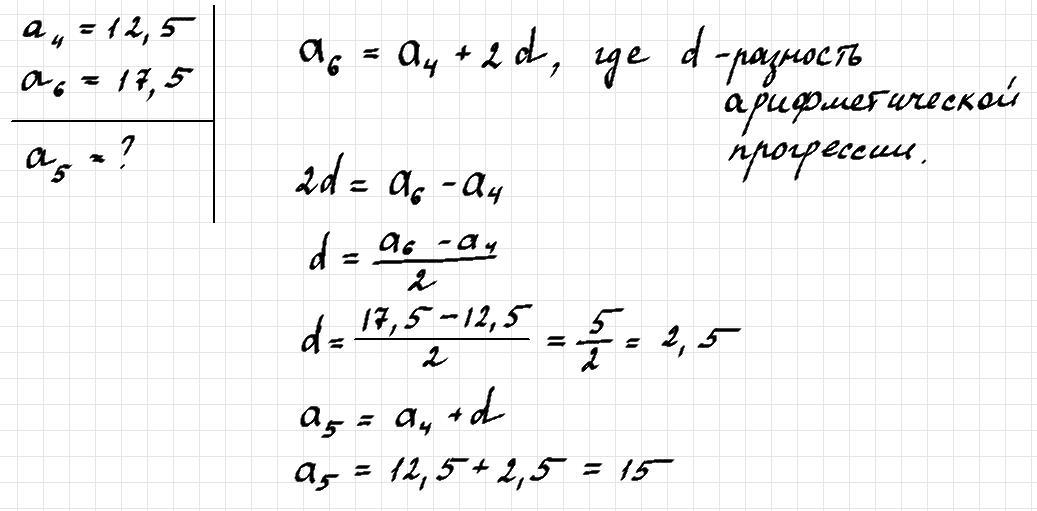 a₄ = 12,5
a₆ = 17,5
a₅ = ?
a₆ = a₄ + 2d, где d - разность
арифметической
прогрессии.
2d = a₆ - a₄
d = (a₆ - a₄)/2
d = (17,5 - 12,5)/2 = 5/2 = 2,5
a₅ = a₄ + d
a₅ = 12,5 + 2,5 = 15